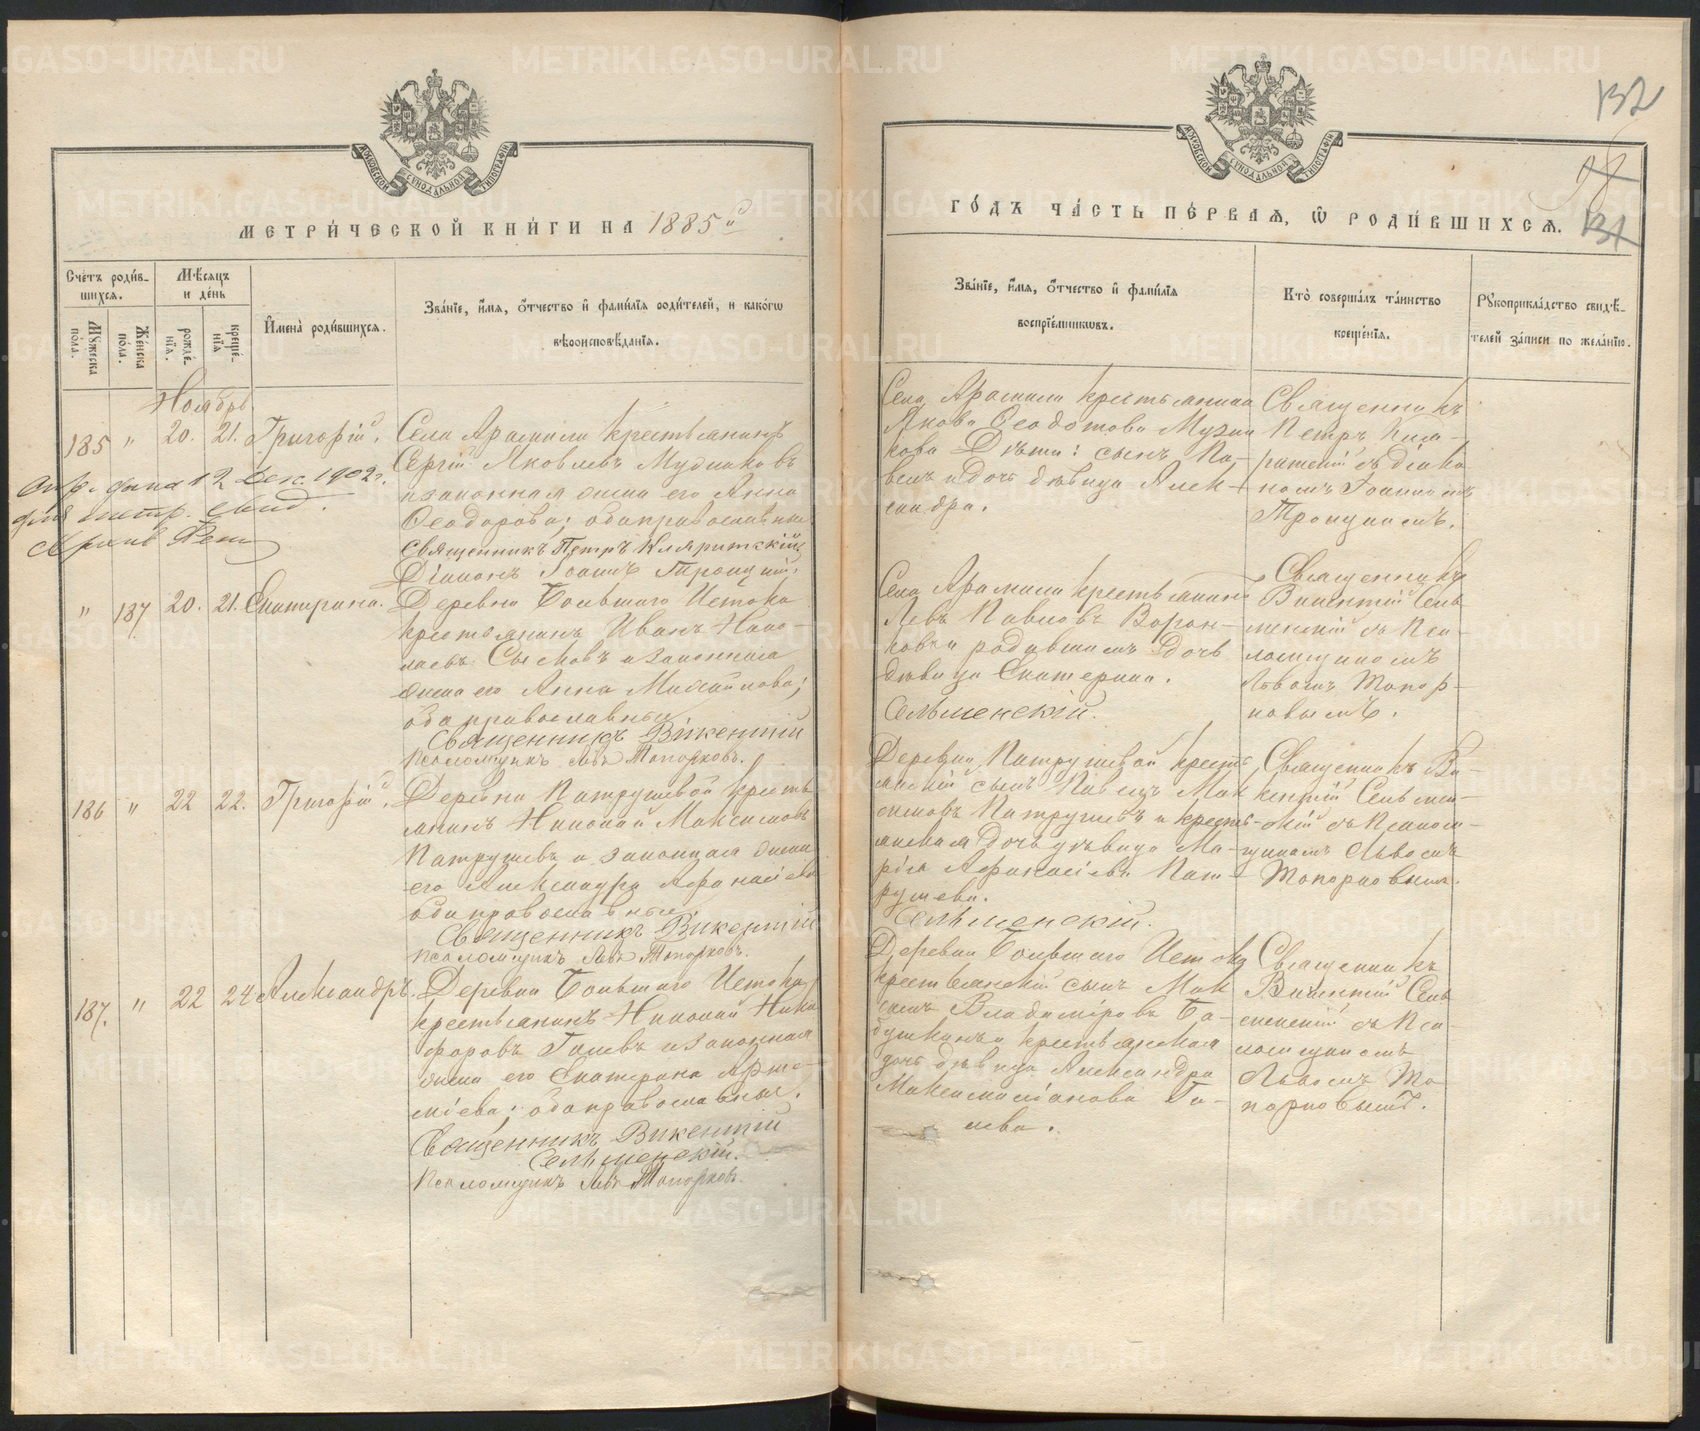 МОСКОВСКОЙ СѴНОДАЛЬНОЙ ТИПОГРАФІИ
МЕТРИ́ЧЕСКОЙ КНИ́ГИ НА 1885 й
Счётъ роди́в-
шихся.
Мꙋ́жеска
по́ла.
Же́нска
по́ла.
Мѣ́сяцъ
и де́нь
рожде́-
нїя.
креще́-
нїя
И҆мена̀ роди́вшихся.
Зва́нїе, и҆́мя, ѻ҆́тчество и҆ фами́лїя роди́телей, и како́гѡ
вѣроисповѣ́данїя.
Ноябрь.
185 " 20. 21. Григорій.
Села Арамили крестьянинъ
Сергій Яковлевъ Мудпаковъ
и законная жена его Анна
Ѳеодорова; оба православные
Священникъ Петръ Кляритскій
Діаконъ Іоаннъ Троицкій.
12 Дек. 1902 г.
метр. свид.
" 187 20. 21. Екатерина.
Деревни Большаго Истока
крестьянинъ Иванъ Нико-
лаевъ и законная
жена его Анна Михайлова;
оба православные
Священникъ Викентій
Псаломщикъ Левъ Топорковъ.
186 " 22 22. Григорій.
Деревни Патрушевой кресть
янинъ Николай Максимовъ
Патрушевъ и законная жена
его Александра Аѳанасіева
оба православные
Священникъ Викентій
Псаломщикъ Левъ Топорковъ.
187. " 22 24 Александръ.
Деревни Большаго Истока
крестьянинъ Николай Ники
форовъ Галевъ и законная
жена его Екатерина Арте-
міева; оба православные.
Священникъ Викентій
Сельменскій.
Псаломщикъ Левъ Топорковъ.
132
131
МОСКОВСКОЙ СѴНОДАЛЬНОЙ ТИПОГРАФІИ
ГО́ДЪ ЧА́СТЬ ПЕ́РВАЯ, Ѡ҆ РОДИ́ВШИХСЯ.
Зва́нїе, и҆́мя, ѻ҆́тчество и҆ фами́лїя
воспрїе́мникѡвъ.
Кто̀ соверша́лъ та́инство
креще́нїя.
Рꙋкоприкла́дство свидѣ́-
телей за́писи по жела́нїю.
Села Арамили крестьянина
Якова Ѳеодотова
кова Дѣти: сынъ Па-
велъ и дочь дѣвица Алек-
сандра.
Священникъ
Петръ Кля-
ритскій съ діако
номъ Іоанномъ
Троицкимъ.
Села Арамили крестьянинъ
Левъ Павловъ Ворон-
ковъ и родившимъ Дочь
дѣвица Екатерина.
Сельменскій.
Священникъ
Викентій Сель
менскій съ Пса-
ломщикомъ
Львомъ Топор-
ковымъ.
Деревни Патрушевой кресть
янскій сынъ Павелъ Мак
симовъ Патрушевъ и кресть-
янская Дочь дѣвица Ма-
рія Аѳанасіева Пат-
рушева.
Сельменскій.
Священникъ Ви-
кентій Сельмен-
скій съ Псалом-
щикомъ Львомъ
Топорковымъ.
Деревни Большаго Истока
крестьянскій сынъ Мак
симъ Владиміровъ Ба-
бушкинъ и крестьянская
дочь дѣвица Александра
Максимиліанова Га-
лева.
Священникъ
Викентій Сель
менскій съ Пса-
ломщикомъ
Львомъ То
порковымъ.
METRIKI.GASO-URAL.RU